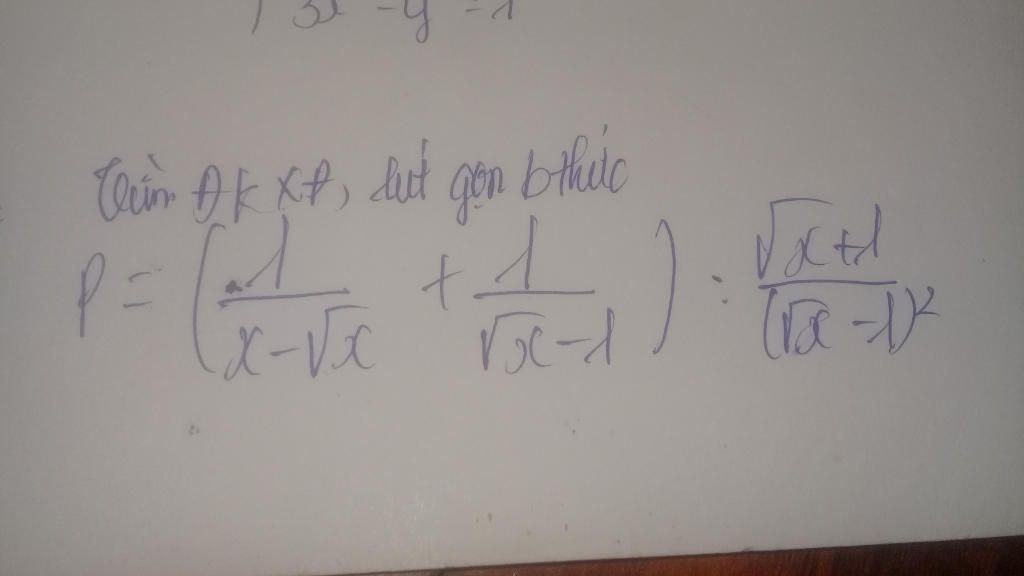 3x - y = 1
Tìm ĐKXĐ, rút gọn b thức
P = ( 1/(x-√x) + 1/(√x-1) ) : (√x+1)/(√x-1)²